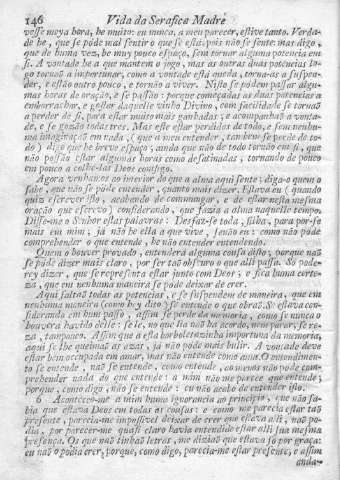 146 Vida da Serafica Madre
vesse meya hora, he muito: eu nunca, a meu parecer, estive tanto. Verda-
de he, que se póde mal sentir o que se está, pois não se sente: mas digo,
que de huma vez, he muy pouco espaço, sem tornar alguma potencia em
si. A vontade he a que mantem o jogo, mas as outras duas potencias lo-
go tornaõ a importunar, como a vontade está quéda, torna-as a suspen-
der, e estão outro pouco, e tornão a viver. Nisto se pódem passar algu-
mas horas de oração, e se passão: porque começadas as duas potencias a
embarrachar, e gostar daquelle vinho Divino, com facilidade se tornaõ
a perder de si, para estar muito mais ganhadas; e acompanhaõ a vonta-
de, e se gozão todas tres. Mas este estar perdidas de todo, e sem nenhu-
ma imaginaçaõ em nada; (que a meu entender, tambem se perde de to-
do) digo que he breve espaço; ainda que não de todo tornão em si, que
não possaõ estar algumas horas como desatinadas, tornando de pouco
em pouco a colhe-las Deos comsigo.
Agora venhamos ao interior do que a alma aqui sente: diga-o quem o
sabe, que não se póde entender, quanto mais dizer. Estava eu (quando
quiz escrever isto, acabando de commungar, e de estar nesta mesma
oração que escrevo) considerando, que fazia a alma naquelle tempo.
Disse-me o Senhor estas palavras: Desfaz-se toda, filha, para pór-se
mais em mim; já não he ella a que vive, senão eu: como não póde
comprehender o que entende, he não entender entendendo.
Quem o houver provado, entenderá alguma cousa disto, porque naõ
se póde dizer mais claro, por ser taõ obscuro o que alli passa. Só pode-
rey dizer, que se representa estar junto com Deos; e fica huma certe-
za, que em nenhuma maneira se póde deixar de crer.
Aqui faltaõ todas as potencias, e se suspendem de maneira, que em
nenhuma maneira (como hey dito) se entende o que obraõ. Se estava con-
siderando em hum passo, assim se perde da memoria, como se nunca o
houvera havido delle: se lê, no que lia naõ ha acordo, nem parar, se re-
za, tampouco. Assim que a esta borboletazinha importuna da memoria,
aqui se lhe queimaõ as azas, já não póde mais bulir. A vontade deve
estar bem occupada em amar, mas não entende como ama. O entendimen-
to se entende, naõ se entende, como entende, ao menos não póde com-
prehender nada do que entende: a mim não me parece que entende;
porque, como digo, não se entende: eu não acabo de entender isto.
6 Aconteceo-me a mim huma ignorancia ao principio, que não sa-
bia que estava Deos em todas as cousas: e como me parecia estar taõ
presente, parecia-me impossivel deixar de crer que estava alli, naõ po-
dia, por parecer-me quasi claro havia entendido estar alli sua mesma
presença. Os que naõ tinhaõ letras, me diziaõ que estava só por graça:
eu naõ o podia crer, porque, como digo, parecia-me estar presente, e assim
anda-